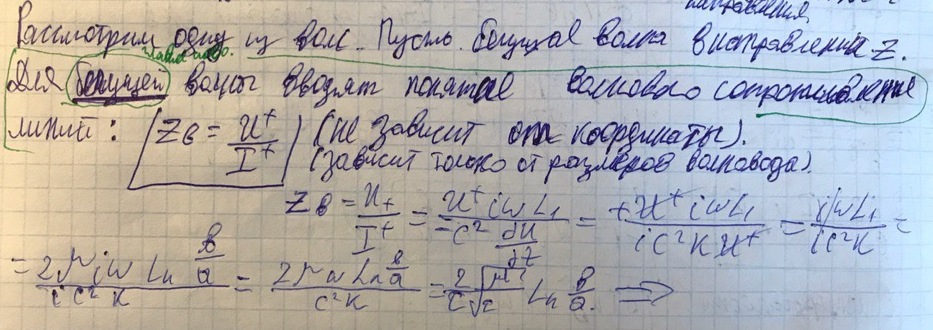 направления
Рассмотрим одну из волн. Пусть бегущая волна в направлении z.
Для бегущей волны вводят понятие волнового сопротивления
линий: Zв = U⁺/I⁺ (не зависит от координаты).
(зависит только от размеров волновода).
Zв = U₊/I⁺ = U⁺ iω L₁/(-c² dU/dz) = +U⁺ iω L₁/(i c² k U⁺) = iω L₁/(i c² k) =
= 2μ iω Ln b/a/(i c² k) = 2μω Ln b/a/(c² k) = 2/c √(μ/ε) Ln b/a. ⇒